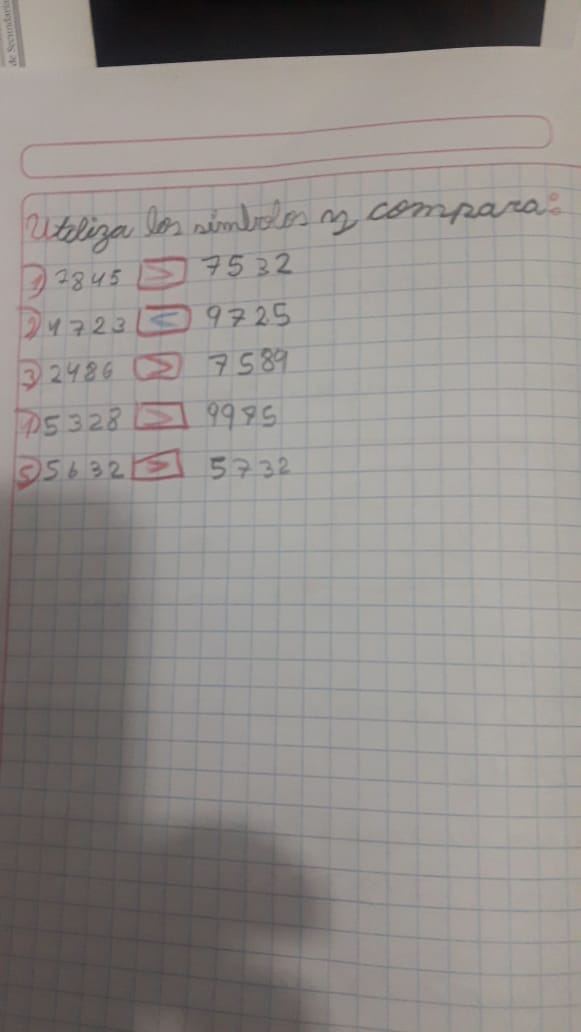 de Secundaria
Utiliza los simbolos y compara:
1) 7845 > 7532
2) 4723 < 9725
3) 2486 > 7589
4) 5328 > 9975
5) 5632 > 5732